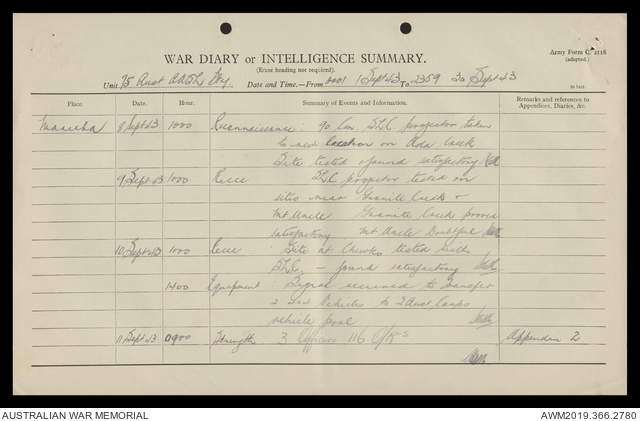 Army Form C. 2118
(adapted.)
WAR DIARY or INTELLIGENCE SUMMARY.
(Erase heading not required).
Unit 75 Aust AASL Bty. Date and Time.—From 0001 1 Sept 43 To 2359 30 Sept 43
Place. Date. Hour. Summary of Events and Information. Remarks and references to Appendices, Diaries, &c.
Mareeba 8 Sept 43 1000 Reconnaissance : 90 Cm. SLC projector taken
to new location on Ada Creek
Site tested & found satisfactory
9 Sept 43 1000 Recce SLC projector tested on
sites near Granite Creek &
Mt Uncle Granite Creek proved
satisfactory Mt Uncle Doubtful
10 Sept 43 1000 Recce : Site at Chewko tested with
SLC – found satisfactory
1400 Equipment : Signal received to transfer
2 Vehicles to 2 Aust Corps
vehicle pool
11 Sept 43 0900 Strength : 3 Officers 116 O/Rs Appendix 2
AUSTRALIAN WAR MEMORIAL AWM2019.366.2780